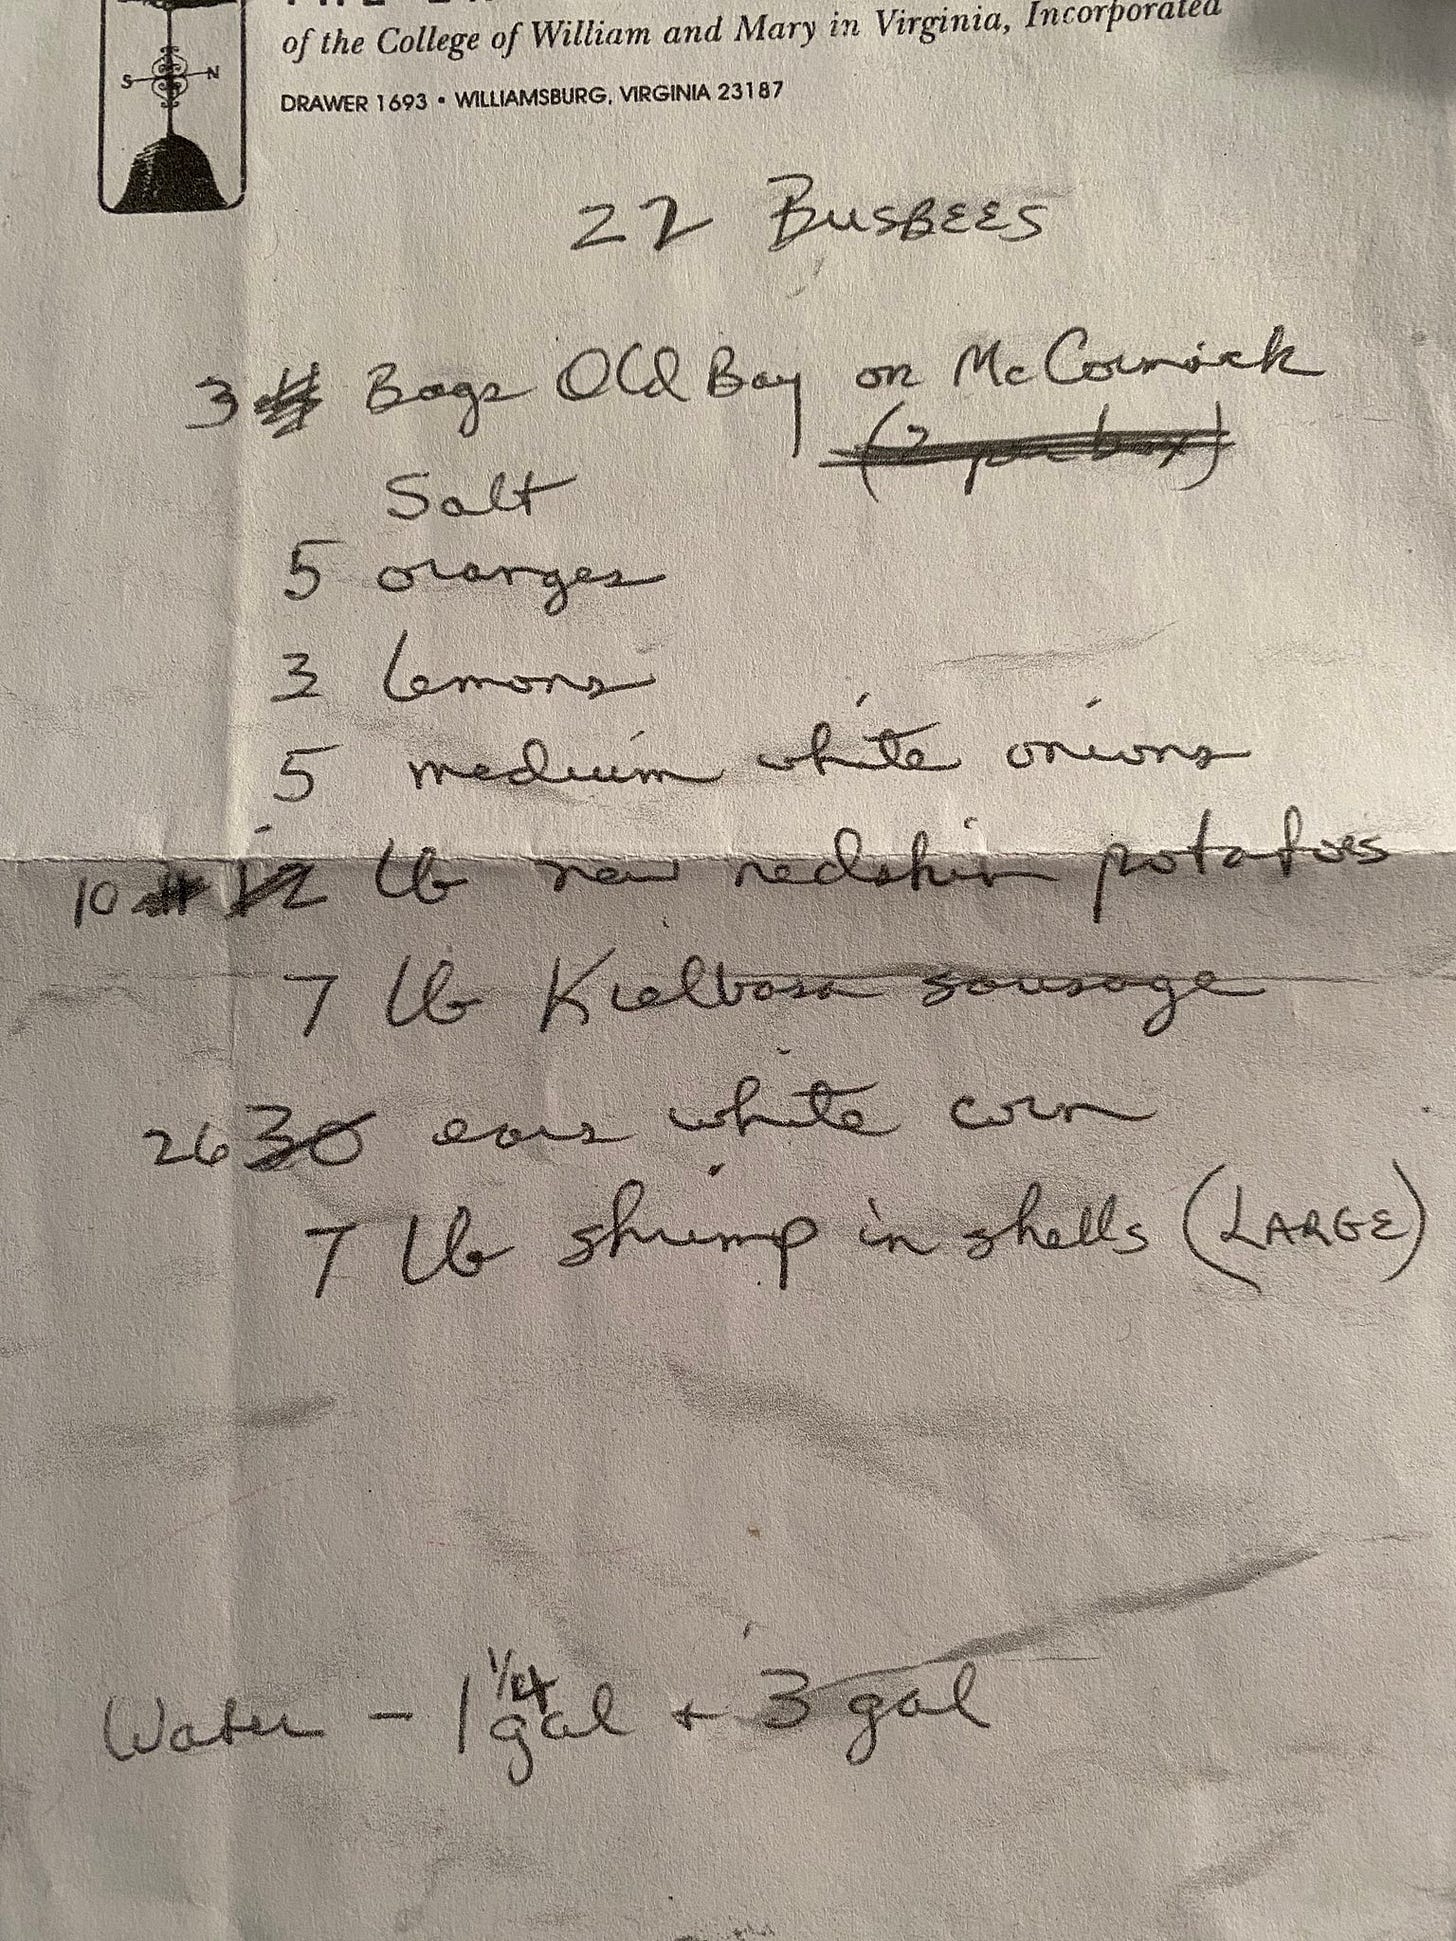 of the College of William and Mary in Virginia, Incorporated
S N
DRAWER 1693 • WILLIAMSBURG, VIRGINIA 23187
22 BUSBEES
3 Bags Old Bay or McCormick
(2 per box)
Salt
5 oranges
3 lemons
5 medium white onions
10 12 lb new redskin potatoes
7 lb Kielbasa sausage
26 30 ears white corn
7 lb shrimp in shells (LARGE)
Water - 1 1/4 gal + 3 gal